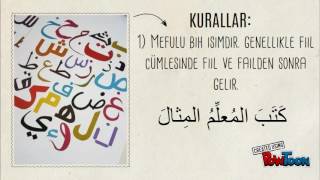 KURALLAR:
1) MEFULU BİH İSİMDİR. GENELLİKLE FİİL
CÜMLESİNDE FİİL VE FAİLDEN SONRA
GELİR.
كَتَبَ المُعَلِّمُ المِثالَ
CREATED USING
POWTOON